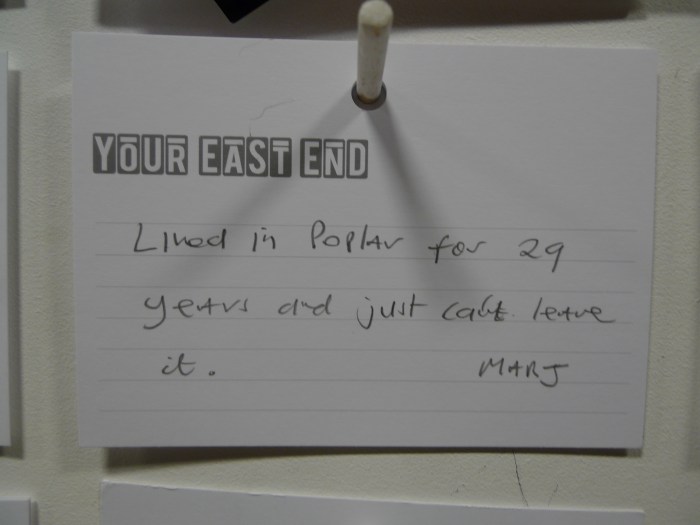 YOUR EAST END
Lived in Poplar for 29
years and just can't leave
it. MARJ